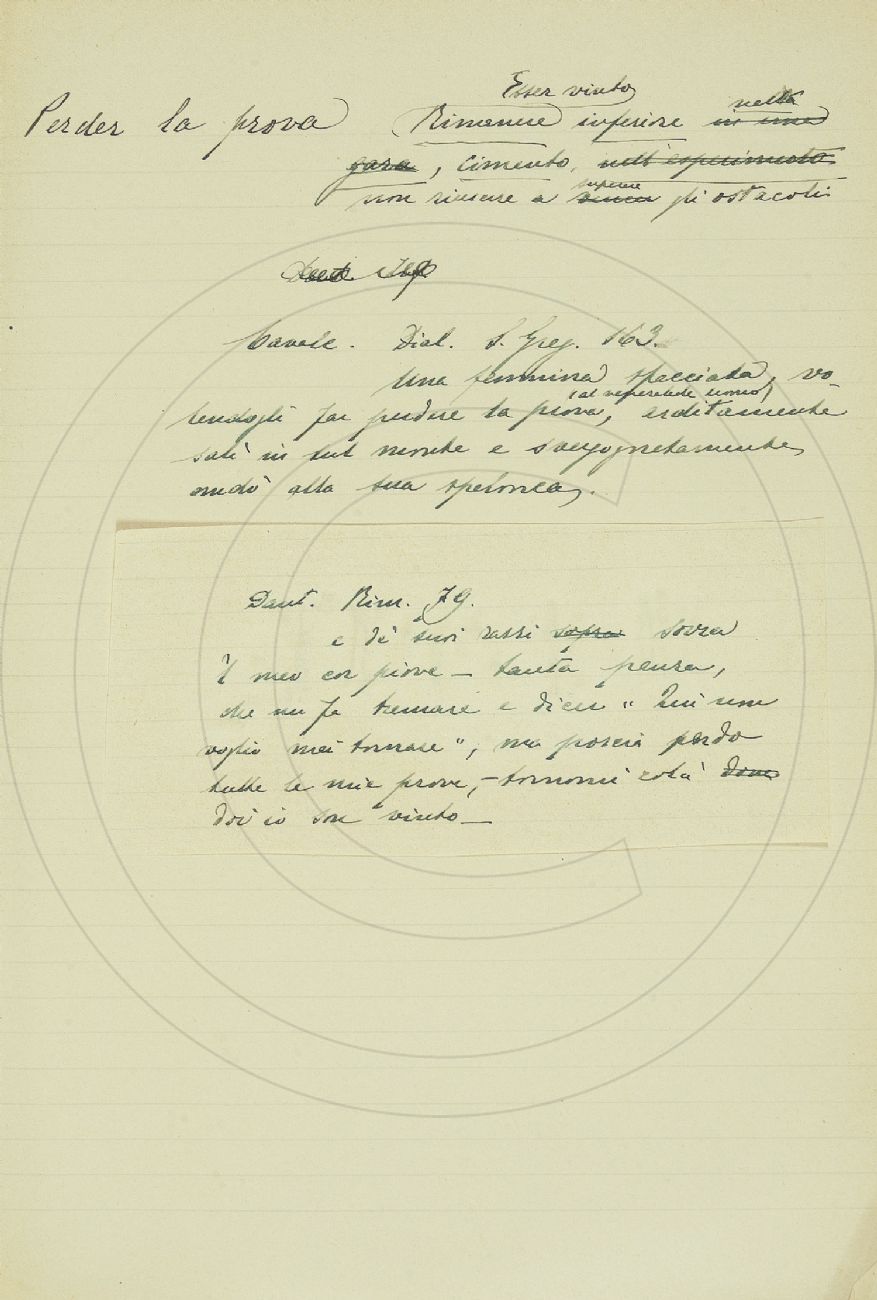 Esser vinto
Perder la prova Rimanere inferiore nella in una
gara, cimento, nell'esperimento
non riuscire a superare vincere gli ostacoli
Cavalc. Dial. S. Greg. 163.
Una femmina spacciata, vo-
(al venerabile uomo)
lendogli far perdere la prova, arditamente
salì in sul monte e svergognatamente
andò alla sua spelonca.
Dant. Rim. 79.
e de' suoi raggi sopra sovra
'l meo cor piove – tanta paura,
che mi fa tremare e dicer "Qui non
voglio mai tornare", ma poscia perdo
tutte le mie prove, – tornomi colà dove
dov' io son vinto –